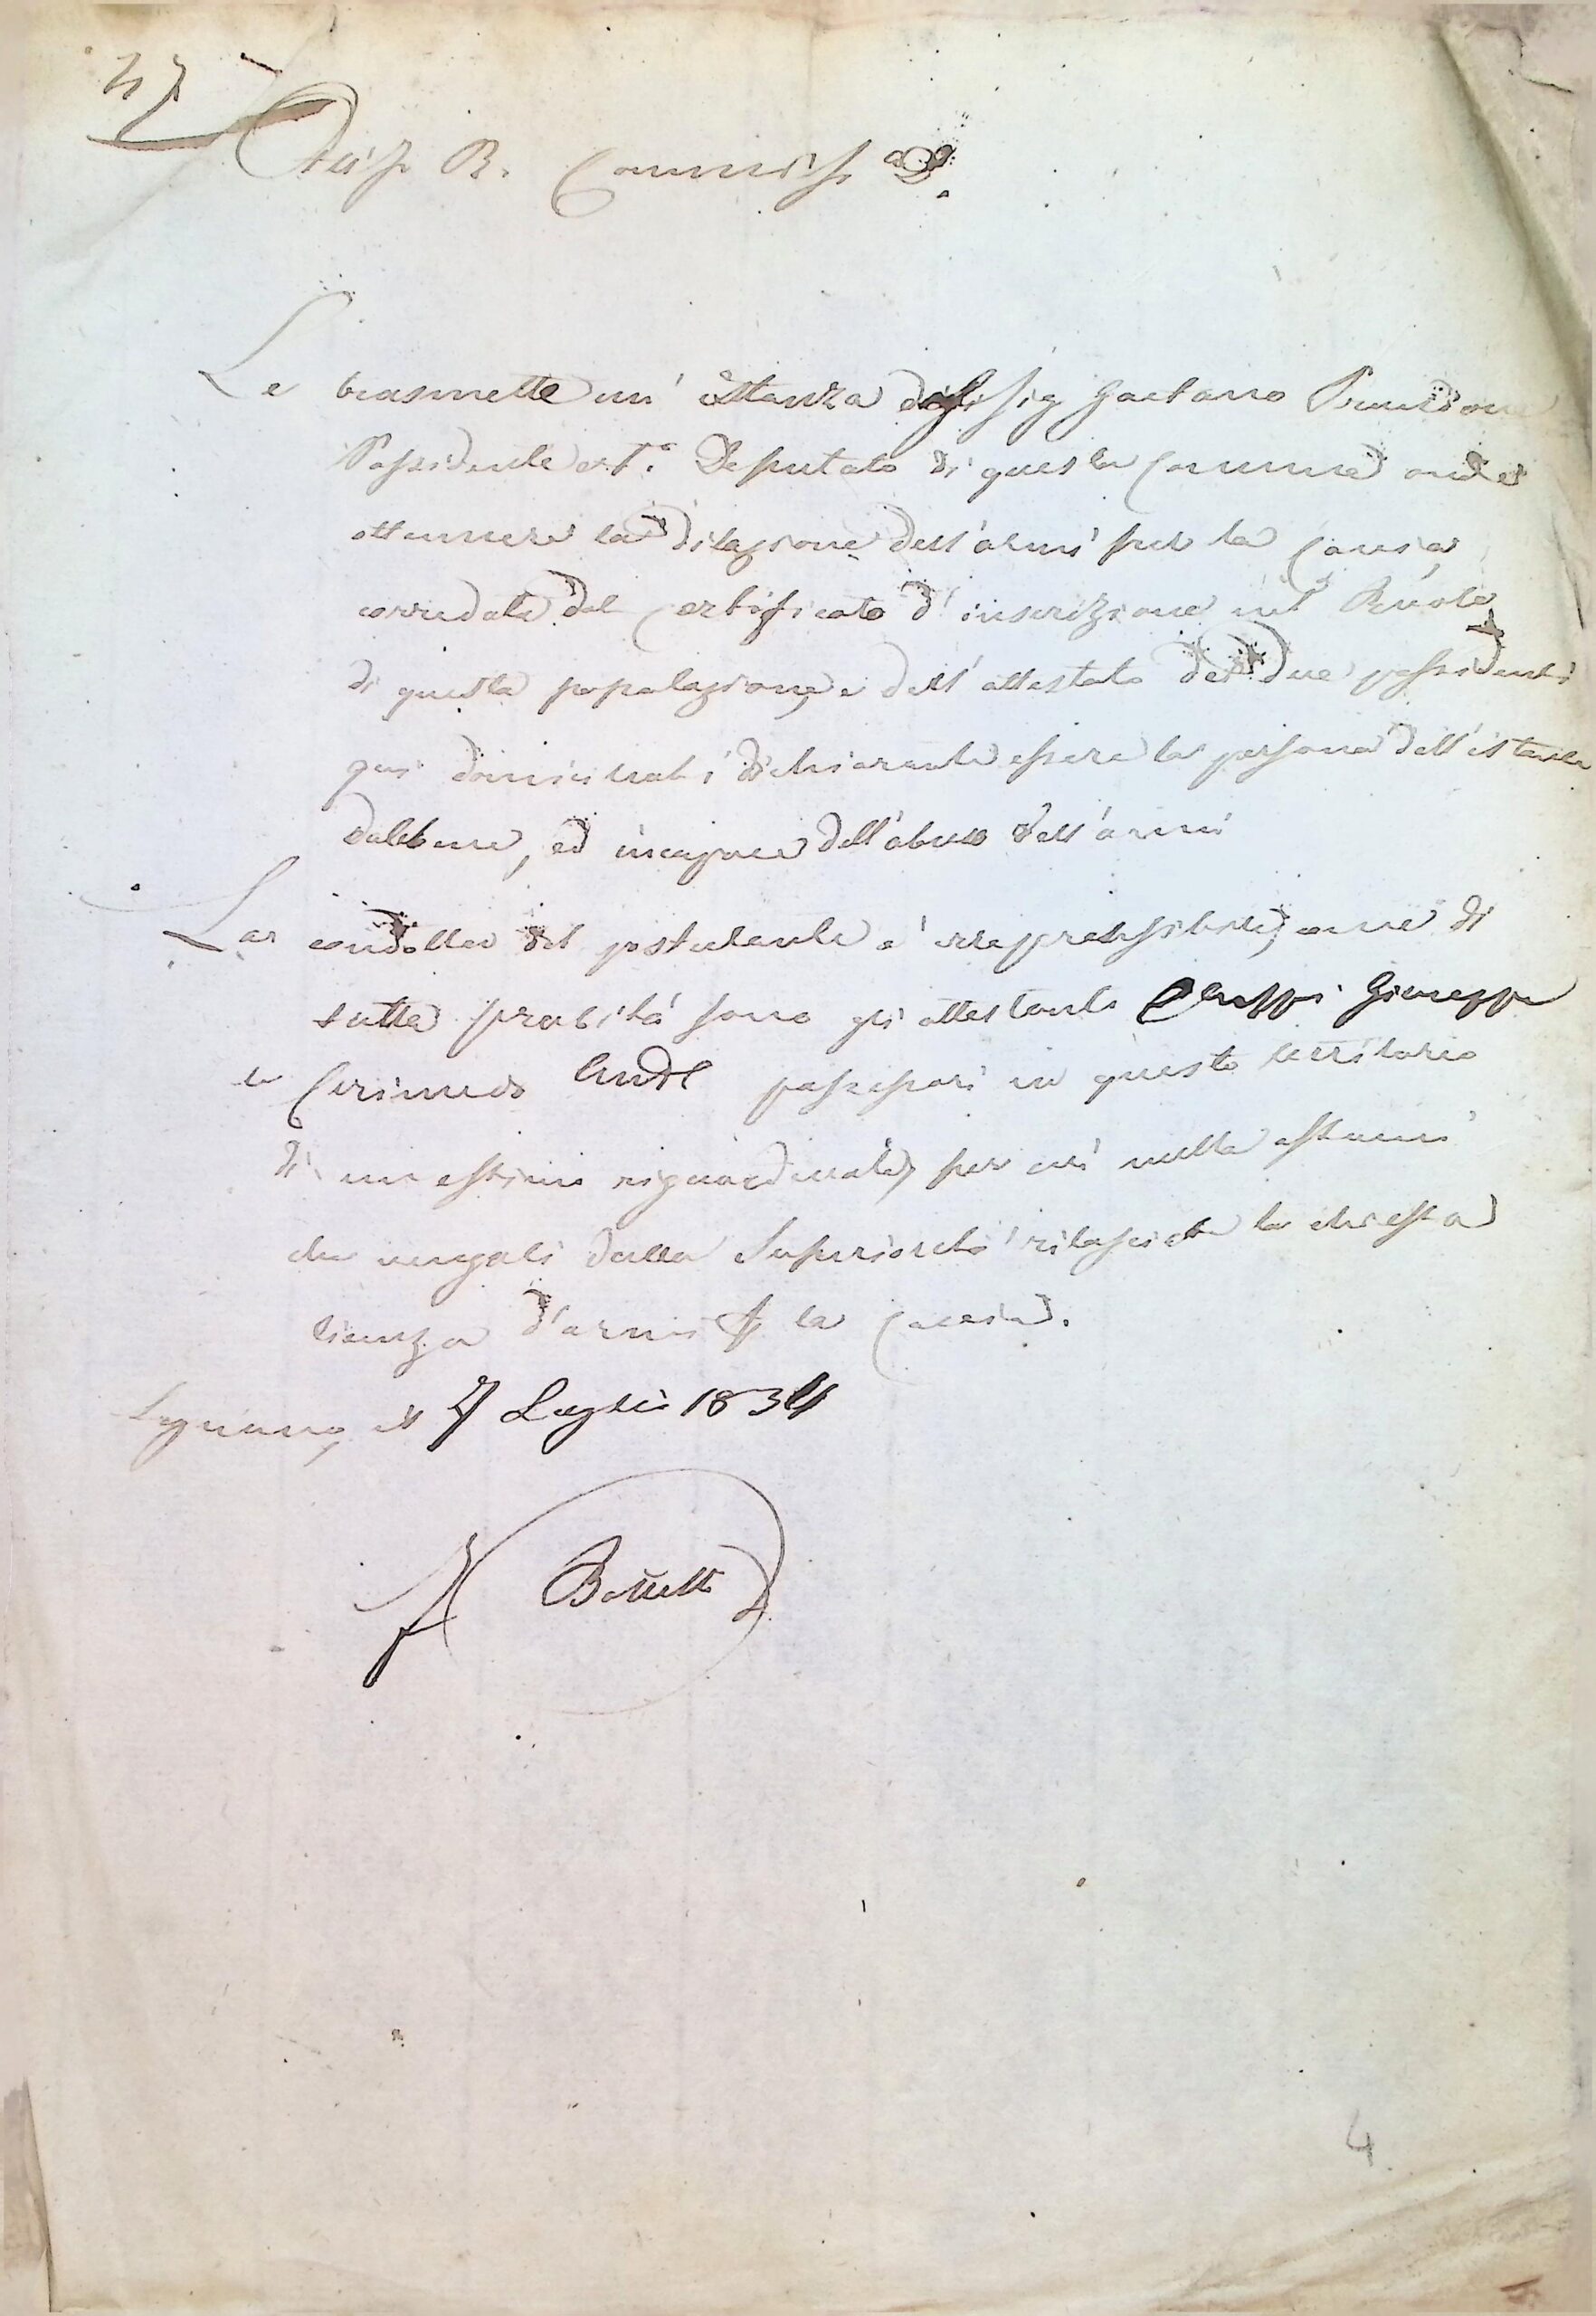 47
R. Commiss
Le trasmette un' istanza del Sig Gaetano
Possidente e 1.° Deputato di questa Comune onde
ottennere la dilazione dell'armi per la Caccia,
corredata del Certificato d'inscrizione nel Ruolo
di questa popolazione, e dell'attestato dei due possidenti
qui domiciliati dichiarante essere la persona dell'istante
dabbene, ed incapace dell'abuso dell'armi
La condotta del postulante è irreprensibile, come di
tutta probità sono gli attestanti Giuseppe
e Cerimedo And.e possessori in questo territorio
di un estimo riguardevole, per cui nulla
che vengali dalla Superiorità rilasciata la chiesta
licenza d'armi p la Caccia.
Legnano, il 7 Luglio 1834
4